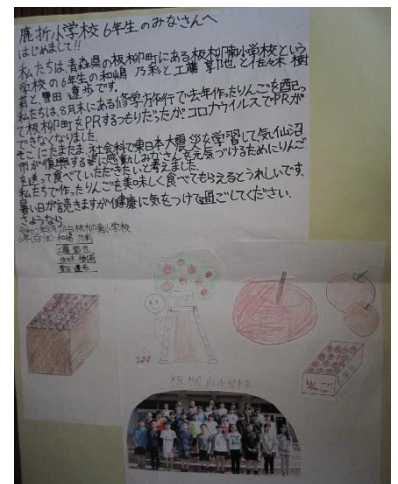 鹿折小学校6年生のみなさんへ
はじめまして!!
私たちは、青森県の板柳町にある板柳南小学校という
学校の6年生の和嶋乃彩と工藤 也と佐々木 樹
君と、豊田 歩です。
私たちは、8月末にある修学旅行で去年作ったりんごを配っ
て板柳町をPRするつもりだったがコロナウイルスでPRが
できなくなりました。
そこにたまたま、社会科で東日本大震災を学習して気仙沼
市が復興する姿に感動しみなさんを元気づけるためにりんご
を送って食べていただきたいと考えました。
私たちで作ったりんごを美味しく食べてもらえるとうれしいです。
暑い日が続きますが健康に気をつけて過ごしてください。
さようなら
板柳南小学校
和嶋 乃彩
工藤
佐々木
豊田
りんご
板柳南小学校